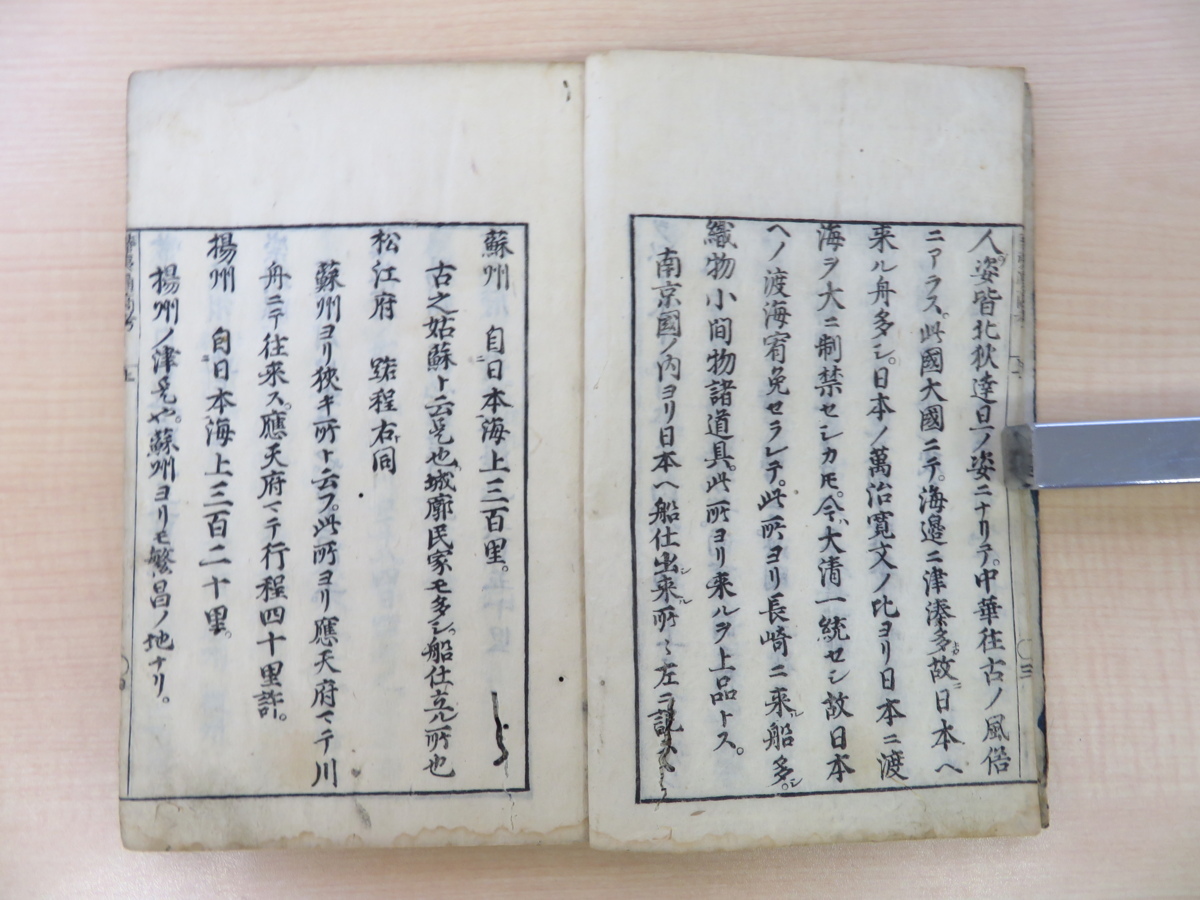 人姿皆北狄達旦ノ姿ニナリテ。中華往古ノ風俗
ニアラス。此國大國ニテ。海邉ニ津湊多故ニ日本ヘ
来ル舟多シ。日本ノ萬治寛文ノ比ヨリ日本ニ渡
海ヲ大ニ制禁セシカ𪜈。今ハ大清一統セシ故日本
ヘノ渡海宥免セラレテ。此所ヨリ長崎ニ来ル船多シ。
織物小間物諸道具。此所ヨリ来ルヲ上品トス。
南京国ノ内ヨリ日本ヘ船仕出シ来ル所々左ニ記ス
蘇州 自日本海上三百里。
古之姑蘇ト云是也。城廓民家モ多シ。船仕立ル所也
松江府 路程右ニ同
蘇州ヨリ狭キ所ト云フ。此所ヨリ應天府マテ川
舟ニテ往来ス。應天府マテ行程四十里許。
揚州 自日本海上三百二十里。
揚州ノ津是也。蘇州ヨリモ繁昌ノ地ナリ。